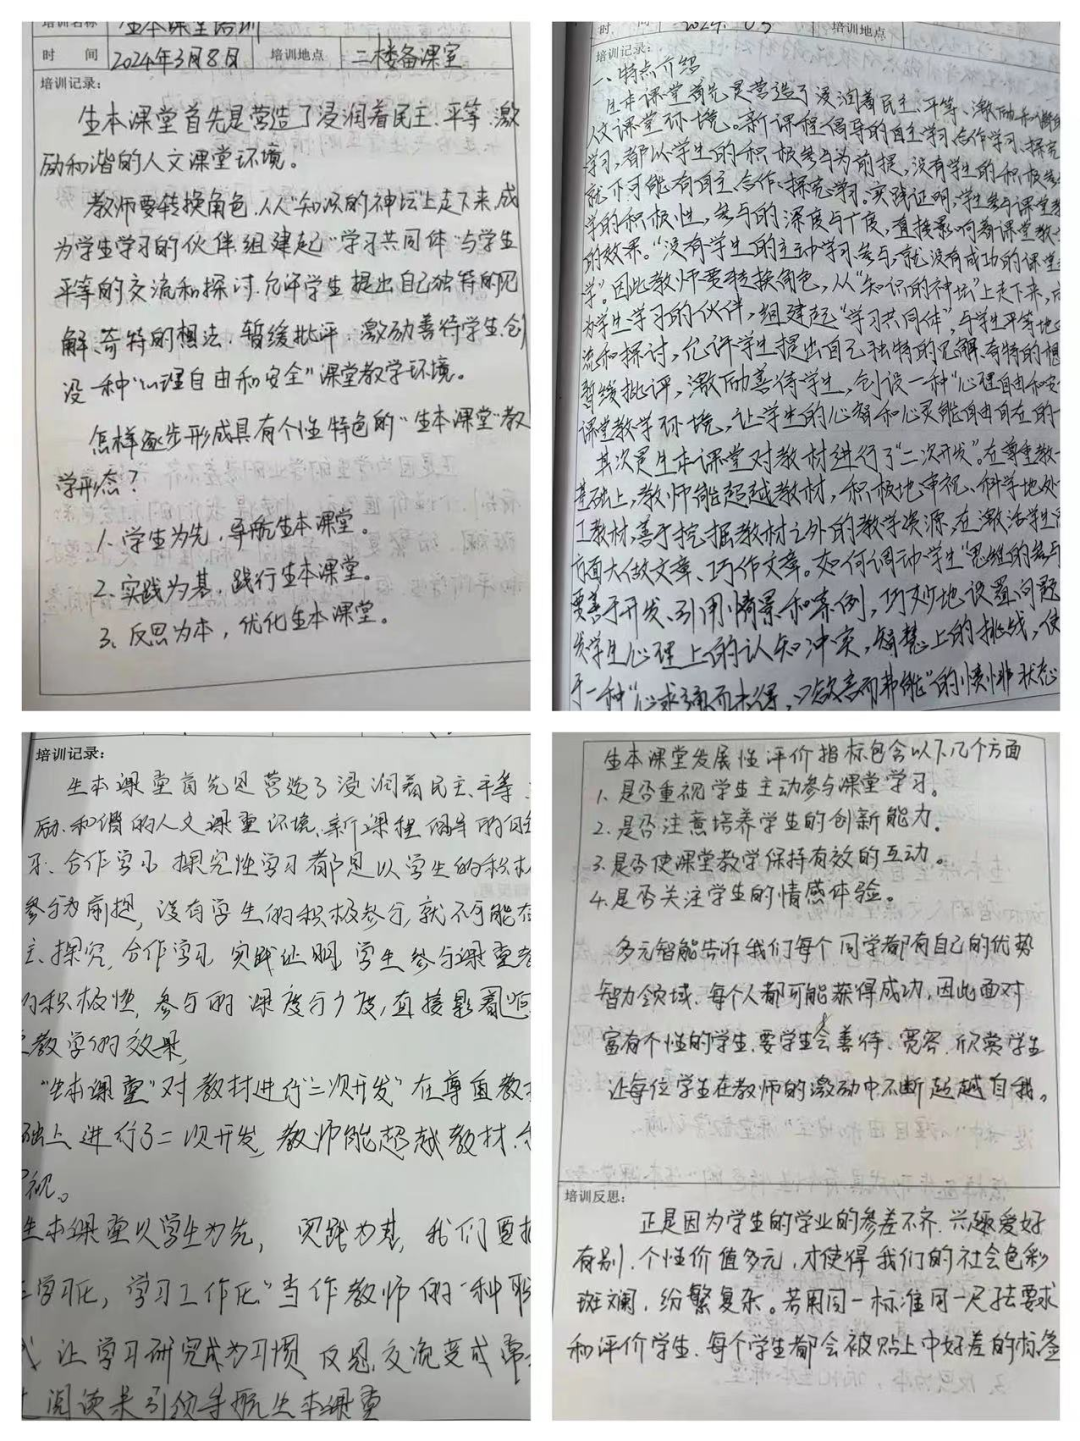 培训名称 生本课堂培训
时 间 2024年3月8日 培训地点 二楼备课室
培训记录:
生本课堂首先是营造了浸润着民主、平等、激
励和谐的人文课堂环境。
教师要转换角色,从"知识的神坛上走下来,成
为学生学习的伙伴组建起"学习共同体"与学生
平等的交流和探讨.允许学生提出自己独特的见
解、奇特的想法.暂缓批评.激励善待学生,创
设一种"心理自由和安全"课堂教学环境。
怎样逐步形成具有个性特色的"生本课堂"教
学形态?
1.学生为先,导航生本课堂。
2.实践为基,践行生本课堂。
3、反思为本,优化生本课堂。
时 间 2024. 培训地点
培训记录:
一、特点介绍
生本课堂首先是营造了浸润着民主、平等、激励和谐
人文课堂环境。新课程倡导的自主学习合作学习、探究
学习,都以学生的积极参与为前提,没有学生的积极参
就不可能有自主、合作、探究学习。实践证明,学生参与课堂教
学的积极性,参与的深度与广度,直接影响着课堂教
的效果。"没有学生的主动学习参与,就没有成功的课堂
学"。因此教师要转换角色,从"知识的神坛"上走下来,成
为学生学习的伙伴,组建起"学习共同体",与学生平等地
流和探讨,允许学生提出自己独特的见解、奇特的想
暂缓批评,激励善待学生,创设一种"心理自由和安
课堂教学环境,让学生的心智和心灵能自由自在的
其次是生本课堂对教材进行了"二次开发"。在尊重教
基础上,教师能超越教材,积极地审视、科学地处
工教材,善于挖掘教材之外的教学资源,在激活学生
方面大做文章、巧作文章。如何调动学生"思维的参与
要善于开发、引用情景和案例,巧妙地设置问题
发学生心理上的认知冲突,智慧上的挑战,使
于一种"心求通而未得,口欲言而弗能"的愤悱状态
培训记录:
生本课堂首先是营造了浸润着民主、平等、
励、和谐的人文课堂环境,新课程倡导的自
习、合作学习 探究性学习都是以学生的积极
参与为前提,没有学生的积极参与,就不可能有
主、探究、合作学习,实践证明,学生参与课堂教
的积极性,参与的深度与广度,直接影响
教学的效果,
"生本课堂"对教材进行"二次开发"在尊重教材
础上,进行了二次开发,教师能超越教材、
视。
生本课堂以学生为先, 实践为基,我们要把
学习化,学习工作化"当作教师的一种职
让学习研究成为习惯,反思、交流变成常
阅读来引领导航生本课堂
生本课堂发展性评价指标包含以下几个方面
1.是否重视学生主动参与课堂学习。
2.是否注意培养学生的创新能力.
3.是否使课堂教学保持有效的互动。
4.是否关注学生的情感体验。
多元智能告诉我们每个同学都有自己的优势
智力领域.每个人都可能获得成功,因此面对
富有个性的学生.要学生会善待、宽容、欣赏学生
让每位学生在教师的激励中不断超越自我。
培训反思:
正是因为学生的学业的参差不齐.兴趣爱好
有别.个性价值多元,才使得我们的社会色彩
斑斓,纷繁复杂。若用同一标准同一尺去要求
和评价学生.每个学生都会被贴上中好差的标签